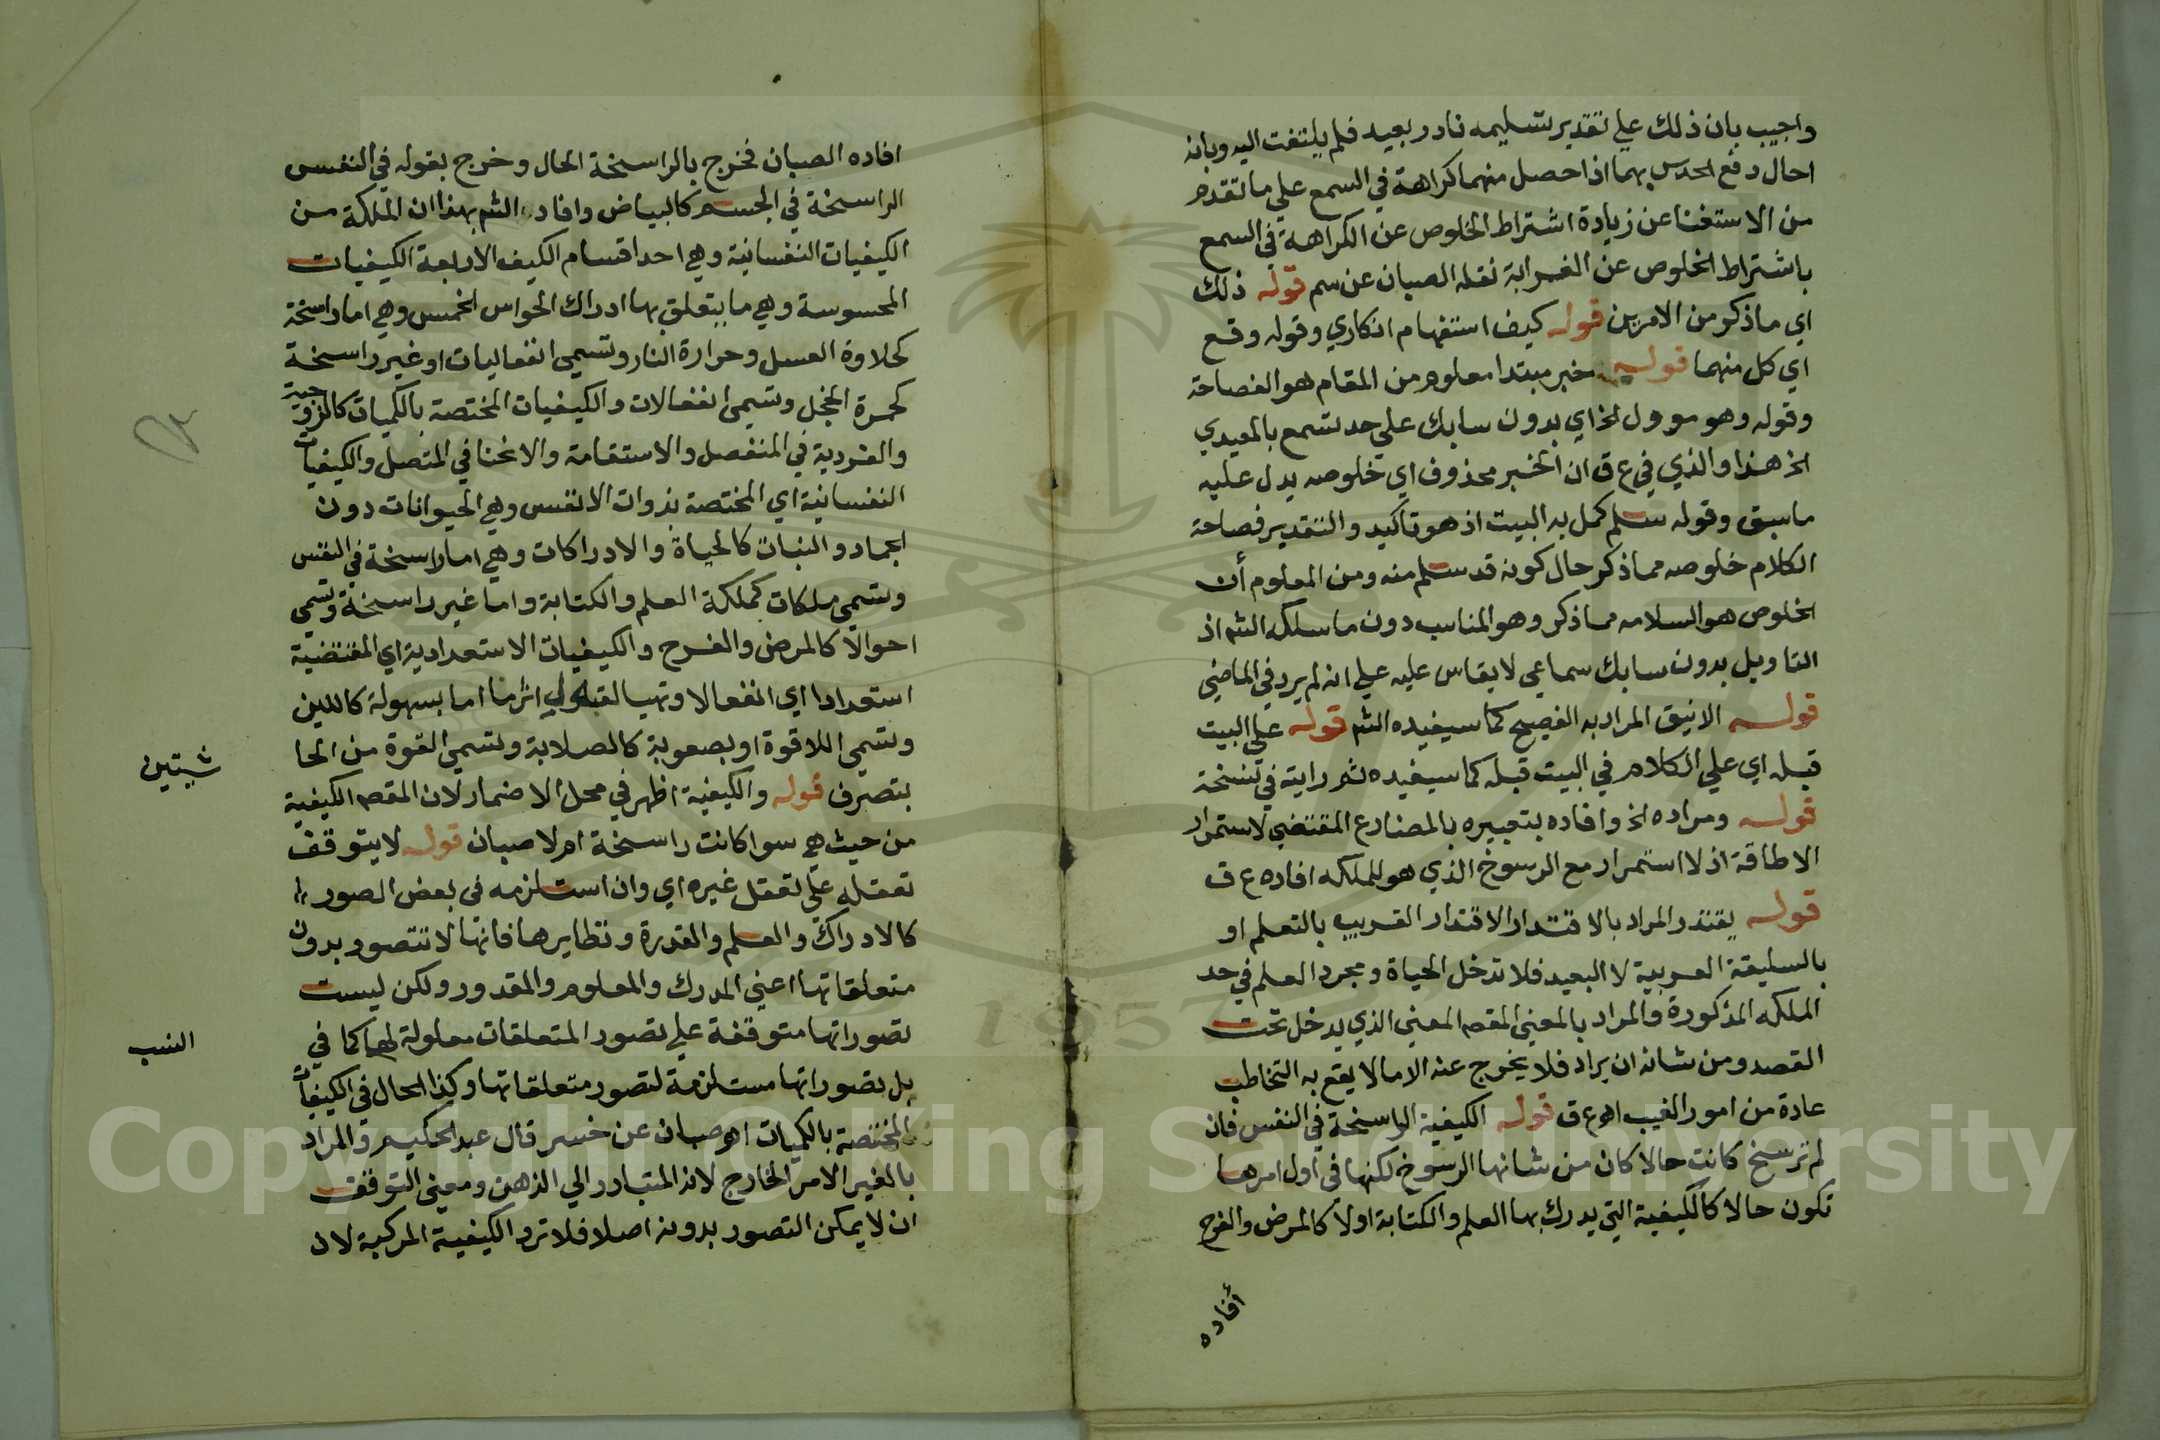 واجيب بان ذلك علي تقدير تسليمه نادر بعيد فلم يلتفت اليه وبانه
احال دفع الحدس بهما اذا حصل منهما كراهة في السمع علي ما تقدم
من الاستغنا عن زيادة اشتراط الخلوص عن الكراهة في السمع
باشتراط الخلوص عن الغرابة نقله الصبان عن سم قوله ذلك
اي ما ذكر من الامرين قوله كيف استفهام انكاري وقوله وقع
اي كل منهما قوله خبر مبتدا معلوم من المقام هو الفصاحة
وقوله وهو موول الخ اي بدون سابك علي حد تسمع بالمعيدي
الخ هذا والذي في ع ق ان الخبر محذوف اي خلوصه يدل عليه
ما سبق وقوله سلم كمل به البيت اذ هو تاكيد والتقدير فصاحة
الكلام خلوصه مما ذكر حال كونه قد سلم منه ومن المعلوم أن
الخلوص هو السلامه مما ذكر وهو المناسب دون ما سلكه الشم اذ
التاويل بدون سابك سماعي لا يقاس عليه علي انه لم يرد في الماضي
قوله الانيق المراد به الفصيح كما سيفيده الشم قوله علي البيت
قبله اي علي الكلام في البيت قبله كما سيفيده ثم رايته في نسخة
قوله ومراده الخ وافاده بتعبيره بالمضارع المقتضي لاستمرار
الاطاقة اذ لا استمرار مع الرسوخ الذي هو للملكه افاده ع ق
قوله يقتدر المراد بالاقتدار الاقتدار القريب بالتعلم او
بالسليقة العربية لا البعيد فلا تدخل الحياة ومجرد العلم في حد
الملكه المذكورة والمراد بالمعني المقصم المعني الذي يدخل تحت
القصد ومن شانه ان يراد فلا يخرج عنه الا ما لا يقع به التخاطب
عادة من امور الغيب اهـ ع ق قوله الكيفية الراسخة في النفس فان
لم ترسخ كانت حالا كان من شانها الرسوخ لكنها في اول امرها
تكون حالا كالكيفية التي يدرك بها العلم والكتابة اولا كالمرض والفرح
أفاده
افاده الصبان فخرج بالراسخة الحال وخرج بقوله في النفس
الراسخة في الجسم كالبياض وافاد الشم بهذا ان الملكة من
الكيفيات النفسانية وهي احد اقسام الكيف الاربعة الكيفيات
المحسوسة وهي ما يتعلق بها ادراك الحواس الخمس وهي اما راسخة
كحلاوة العسل وحرارة النار وتسمي انفعاليات او غير راسخة
كحمرة الخجل وتسمي انفعالات والكيفيات المختصة بالكميات كالزوجية
والفردية في المنفصل والاستقامة والانحنا في المتصل والكيفيات
النفسانية اي المختصة بذوات الانفس وهي الحيوانات دون
الجماد والنبات كالحياة والادراكات وهي اما راسخة في النفس
وتسمي ملكات كملكة العلم والكتابة واما غير راسخة وتسمي
احوالا كالمرض والفرح والكيفيات الاستعدادية اي المقتضية
استعدادا اي انفعالا وتهيا لقبول اثر ما اما بسهولة كاللين
وتسمي اللاقوة او بصعوبة كالصلابة وتسمي القوة من الحا
بتصرف قوله والكيفية اظهر في محل الاضمار لان المقصم الكيفية
من حيث هي سوا كانت راسخة ام لا صبان قوله لا يتوقف
تعقله علي تعقل غيره اي وان استلزمه في بعض الصور
كالادراك والعلم والقدرة ونظايرها فانها لا تتصور بدون
متعلقاتها اعني المدرك والمعلوم والمقدور ولكن ليست
تصوراتها متوقفة علي تصور المتعلقات معلولة لها كما في
بل تصوراتها مستلزمة لتصور متعلقاتها وكذا الحال في الكيفيات
المختصة بالكميات اهـ صبان عن خسر قال عبد الحكيم والمراد
بالغير الامر الخارج لانه المتبادر الي الذهن ومعني التوقف
ان لا يمكن التصور بدونه اصلا فلا ترد الكيفية المركبة لان
شيتين
النسب
Copyright © King Saud University
1957